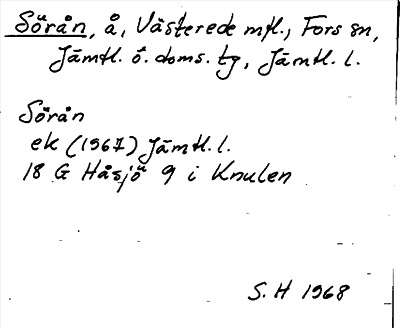 Sörån, å, Västerede mfl., Fors sn,
Jämtl. ö. doms. tg, Jämtl. l.
Sörån
ek (1967) Jämtl. l.
18 G Håsjö 9 i Knulen
S. H 1968